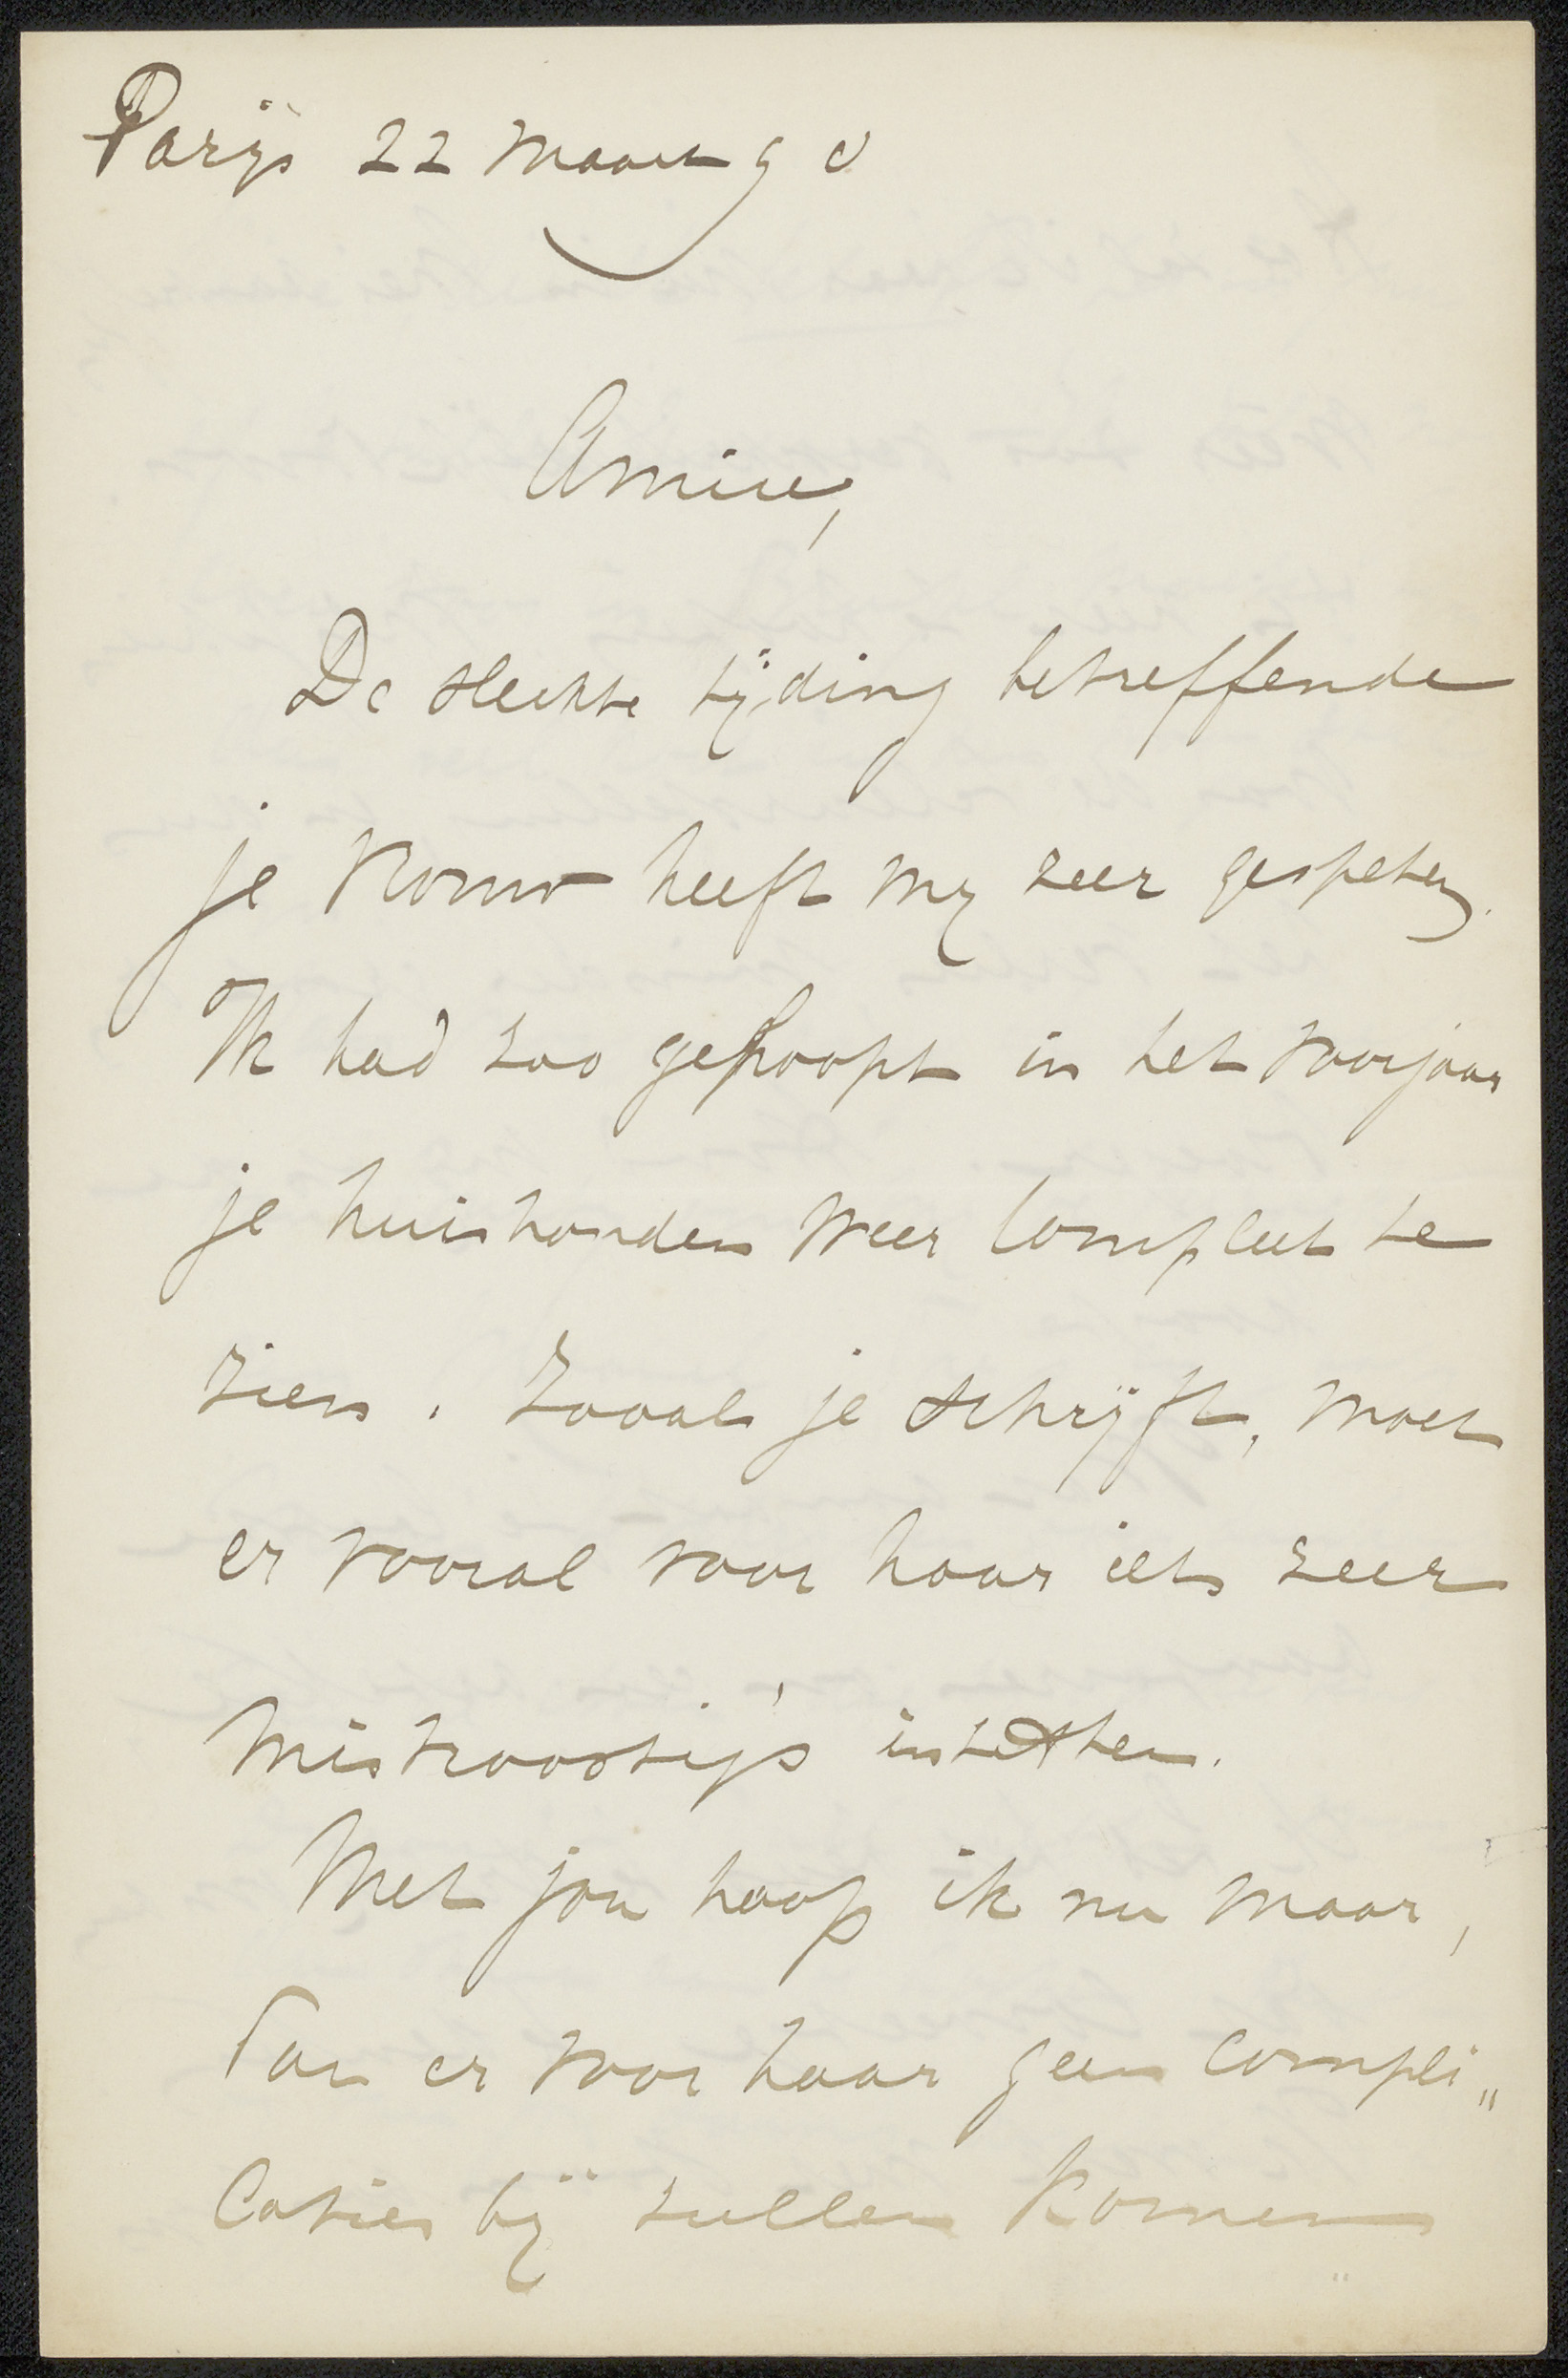 Parijs 22 Maart 90
Amice,
De slechte tijding betreffende
je vrouw heeft mij zeer gespeten.
Ik had zoo gehoopt in het voorjaar
je huishouden weer compleet te
zien. Zooals je schrijft, moet
er vooral voor haar iets zeer
mistroostigs in zitten.
Met jou hoop ik nu maar,
dat er voor haar geen compli„
caties bij zullen komen